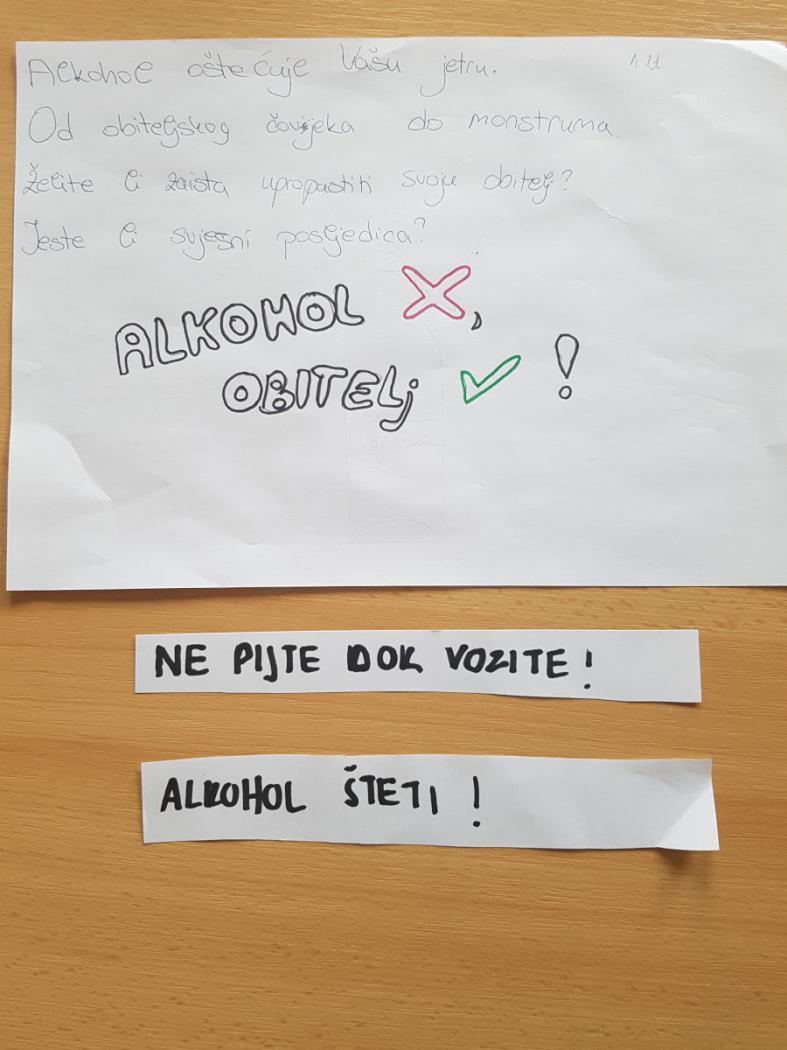 Alkohol oštećuje Vašu jetru.
Od obiteljskog čovjeka do monstruma.
Želite li zaista upropastiti svoju obitelj?
Jeste li svjesni posljedica?
ALKOHOL ❌,
OBITELJ ✓ !
NE PIJTE DOK VOZITE!
ALKOHOL ŠTETI!